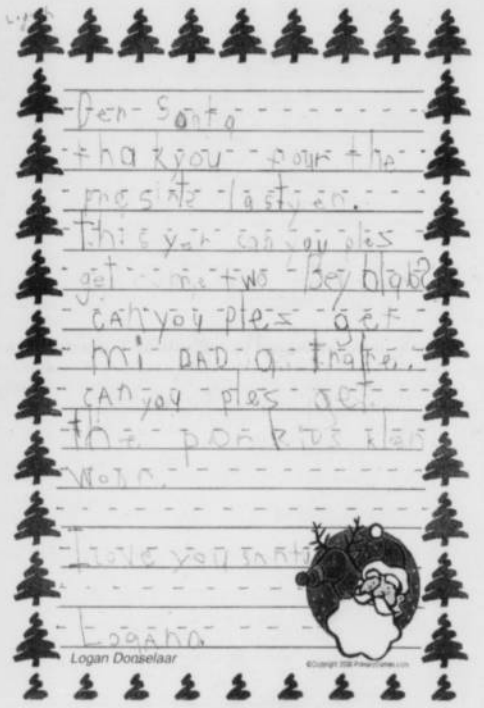 Logan
Der Santa
thakyou pour the
presints lastyer.
this yer can you ples
get me two Bey blabs
cAn you ples get
mi DAD a
cAn you ples get
the por kids
worm.
I love you santa
Logann
Logan Donselaar
©Copyright 2008 PrimaryGames.com